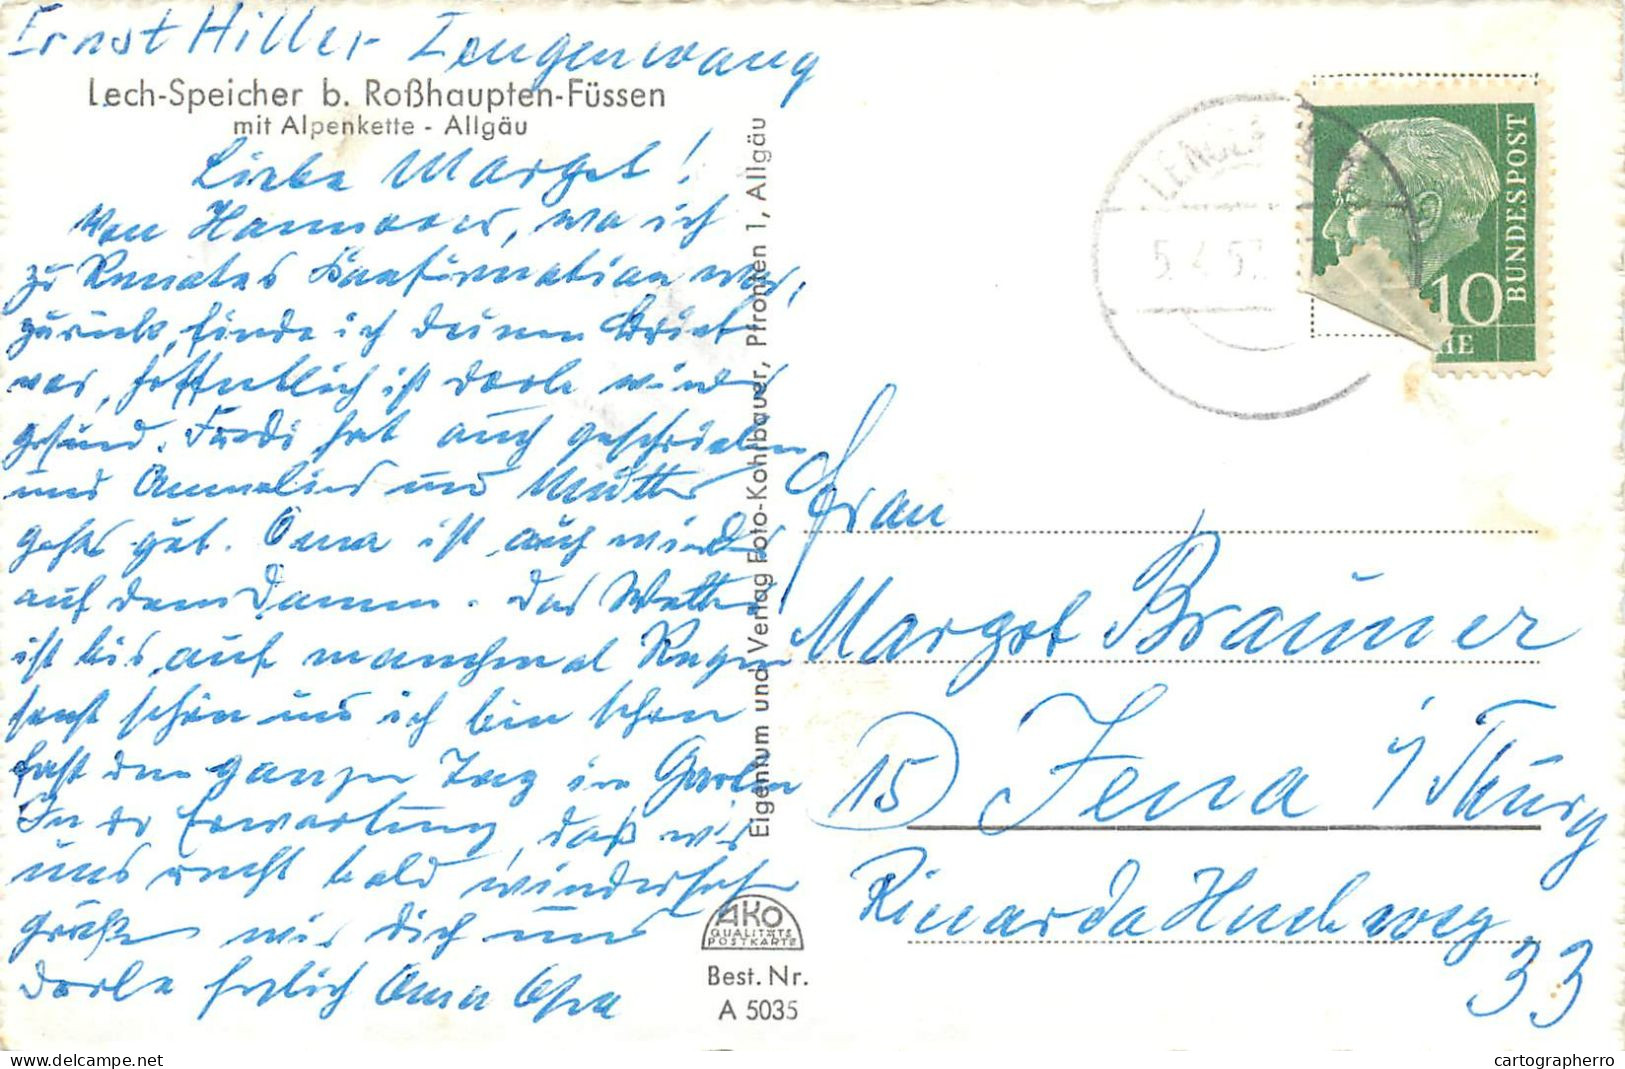 Ernst Hiller Lengenwang
Lech-Speicher b. Roßhaupten-Füssen
mit Alpenkette - Allgäu
Liebe Margot!
Von Hannover, wo ich
zu Renates Konfirmation war,
zurück, finde ich deinen Brief
vor, hoffentlich ist Dorle wieder
gesund. Fredi hat auch geschrieben
und Annelies und Mutter
gehts gut. Oma ist auch wieder
auf dem Damm. Das Wetter
ist bis auf manchmal Regen
sonst schön und ich bin schon
fast den ganzen Tag im Garten
In der Erwartung, daß wir
uns recht bald wiedersehen
grüßen wir dich und
Dorle herzlich Oma Opa
Eigentum und Verlag Foto-Kohlbauer, Pfronten 1, Allgäu
AKO
QUALITÄTS
POSTKARTE
Best. Nr.
A 5035
5.4.57
BUNDESPOST
10
Frau
Margot Brauner
15 Jena i/Thürg
Ricarda Huchweg
33
cartographerro